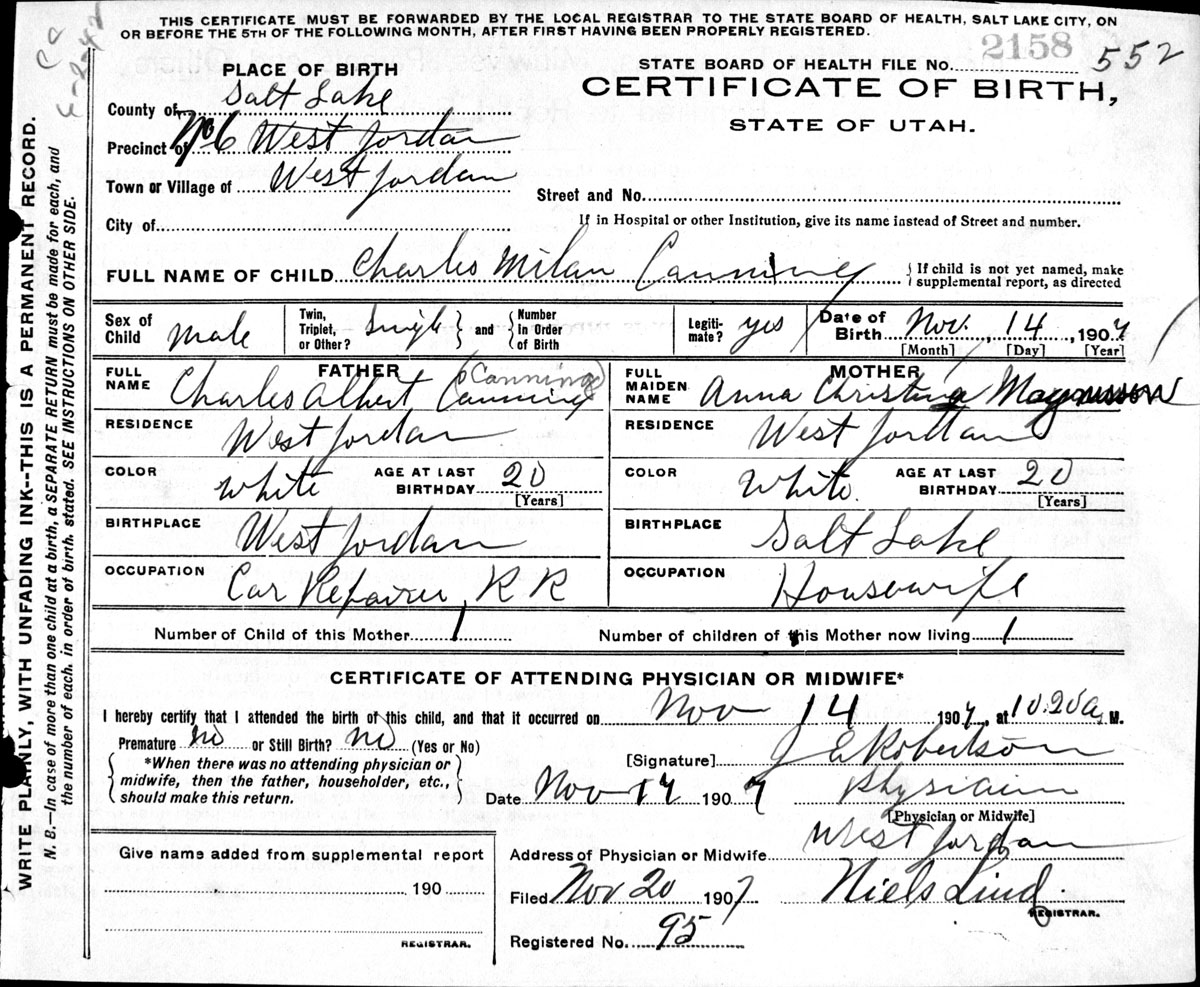 THIS CERTIFICATE MUST BE FORWARDED BY THE LOCAL REGISTRAR TO THE STATE BOARD OF HEALTH, SALT LAKE CITY, ON
OR BEFORE THE 5TH OF THE FOLLOWING MONTH, AFTER FIRST HAVING BEEN PROPERLY REGISTERED.
2158
STATE BOARD OF HEALTH FILE NO. 552
PLACE OF BIRTH
CERTIFICATE OF BIRTH,
STATE OF UTAH.
County of Salt Lake
Precinct of No 6 West Jordan
Town or Village of West Jordan
Street and No.
City of
If in Hospital or other Institution, give its name instead of Street and number.
FULL NAME OF CHILD Charles Milan Canning
If child is not yet named, make
supplemental report, as directed
Sex of Child male
Twin, Triplet, or Other? Single and Number In Order of Birth
Legiti-mate? yes
Date of Birth Nov. 14, 1907
[Month] [Day] [Year]
FATHER
FULL NAME Charles Albert Canning (Canning)
MOTHER
FULL MAIDEN NAME Anna Christina Magnusson
RESIDENCE West Jordan
RESIDENCE West Jordan
COLOR white AGE AT LAST BIRTHDAY 20 [Years]
COLOR White. AGE AT LAST BIRTHDAY 20 [Years]
BIRTHPLACE West Jordan
BIRTHPLACE Salt Lake
OCCUPATION Car Repairer, R R
OCCUPATION Housewife
Number of Child of this Mother 1
Number of children of this Mother now living 1
CERTIFICATE OF ATTENDING PHYSICIAN OR MIDWIFE*
I hereby certify that I attended the birth of this child, and that it occurred on Nov 14 1907, at 10.20 a M.
Premature no or Still Birth? no (Yes or No)
*When there was no attending physician or
midwife, then the father, householder, etc.,
should make this return.
[Signature] J E Robertson
Date Nov 17 1907
Physician
[Physician or Midwife]
Address of Physician or Midwife West Jordan
Give name added from supplemental report
190
REGISTRAR.
Filed Nov 20 1907
Niels Lind.
REGISTRAR.
Registered No. 95
WRITE PLAINLY, WITH UNFADING INK--THIS IS A PERMANENT RECORD.
N. B.—In case of more than one child at a birth, a SEPARATE RETURN must be made for each, and
the number of each, in order of birth, stated. SEE INSTRUCTIONS ON OTHER SIDE.